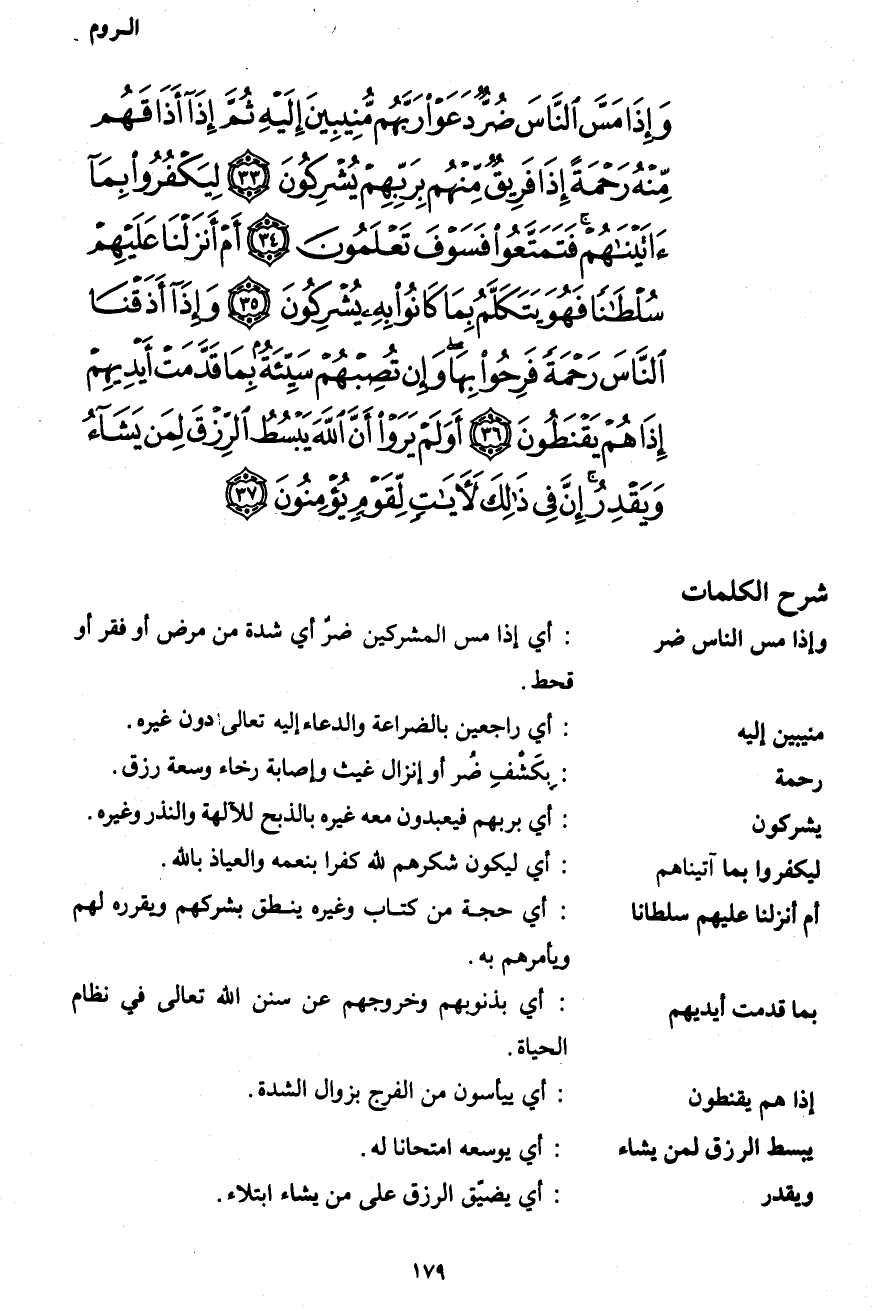 الـروم
وَإِذَا مَسَّ ٱلنَّاسَ ضُرٌّ دَعَوْا۟ رَبَّهُم مُّنِيبِينَ إِلَيْهِ ثُمَّ إِذَآ أَذَاقَهُم
مِّنْهُ رَحْمَةً إِذَا فَرِيقٌ مِّنْهُم بِرَبِّهِمْ يُشْرِكُونَ ﴿٣٣﴾ لِيَكْفُرُوا۟ بِمَآ
ءَاتَيْنَٰهُمْ ۚ فَتَمَتَّعُوا۟ فَسَوْفَ تَعْلَمُونَ ﴿٣٤﴾ أَمْ أَنزَلْنَا عَلَيْهِمْ
سُلْطَٰنًا فَهُوَ يَتَكَلَّمُ بِمَا كَانُوا۟ بِهِۦ يُشْرِكُونَ ﴿٣٥﴾ وَإِذَآ أَذَقْنَا
ٱلنَّاسَ رَحْمَةً فَرِحُوا۟ بِهَا ۖ وَإِن تُصِبْهُمْ سَيِّئَةٌۢ بِمَا قَدَّمَتْ أَيْدِيهِمْ
إِذَا هُمْ يَقْنَطُونَ ﴿٣٦﴾ أَوَلَمْ يَرَوْا۟ أَنَّ ٱللَّهَ يَبْسُطُ ٱلرِّزْقَ لِمَن يَشَآءُ
وَيَقْدِرُ ۚ إِنَّ فِى ذَٰلِكَ لَءَايَٰتٍ لِّقَوْمٍ يُؤْمِنُونَ ﴿٣٧﴾
شرح الكلمات
وإذا مس الناس ضر : أي إذا مس المشركين ضرٌ أي شدة من مرض أو فقر أو
قحط.
منيبين إليه : أي راجعين بالضراعة والدعاء إليه تعالى دون غيره.
رحمة : بِكَشْفِ ضُر أو إنزال غيث وإصابة رخاء وسعة رزق.
يشركون : أي بربهم فيعبدون معه غيره بالذبح للآلهة والنذر وغيره.
ليكفروا بما آتيناهم : أي ليكون شكرهم لله كفرا بنعمه والعياذ بالله.
أم أنزلنا عليهم سلطانا : أي حجـة من كتـاب وغيره ينـطق بشركهم ويقرره لهم
ويأمرهم به.
بما قدمت أيديهم : أي بذنوبهم وخروجهم عن سنن الله تعالى في نظام
الحياة.
إذا هم يقنطون : أي ييأسون من الفرج بزوال الشدة.
يبسط الرزق لمن يشاء : أي يوسعه امتحانا له.
ويقدر : أي يضيّق الرزق على من يشاء ابتلاء.
١٧٩